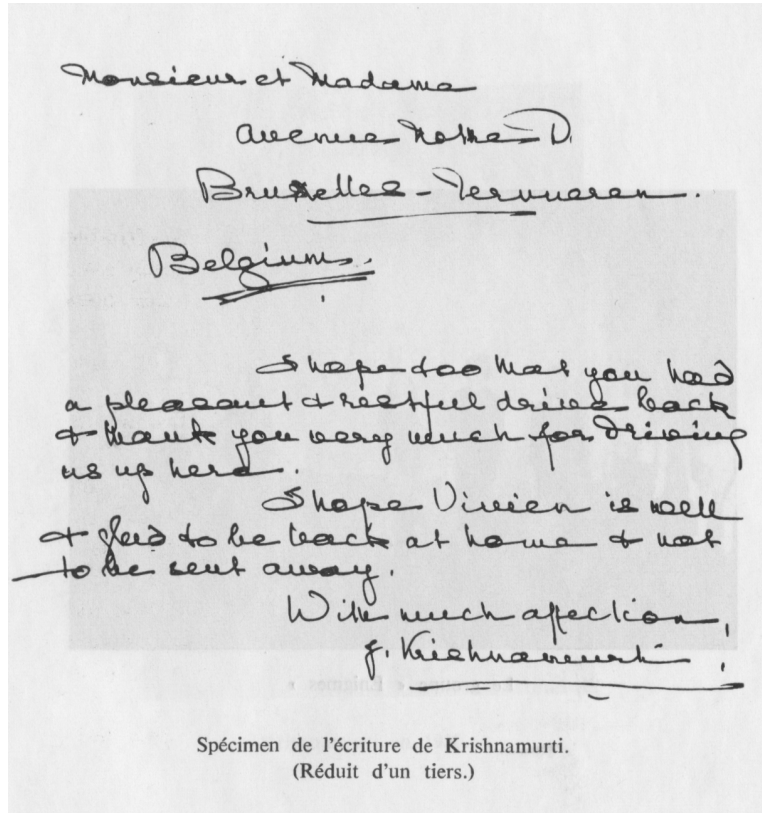 Monsieur et Madame
avenue Notre D.
Bruxelles - Tervueren.
Belgium.
I hope too that you had
a pleasant & restful drive back
& thank you very much for driving
us up here.
I hope Vivien is well
& glad to be back at home & not
to be sent away.
With much affection,
J. Krishnamurti
Spécimen de l'écriture de Krishnamurti.
(Réduit d'un tiers.)